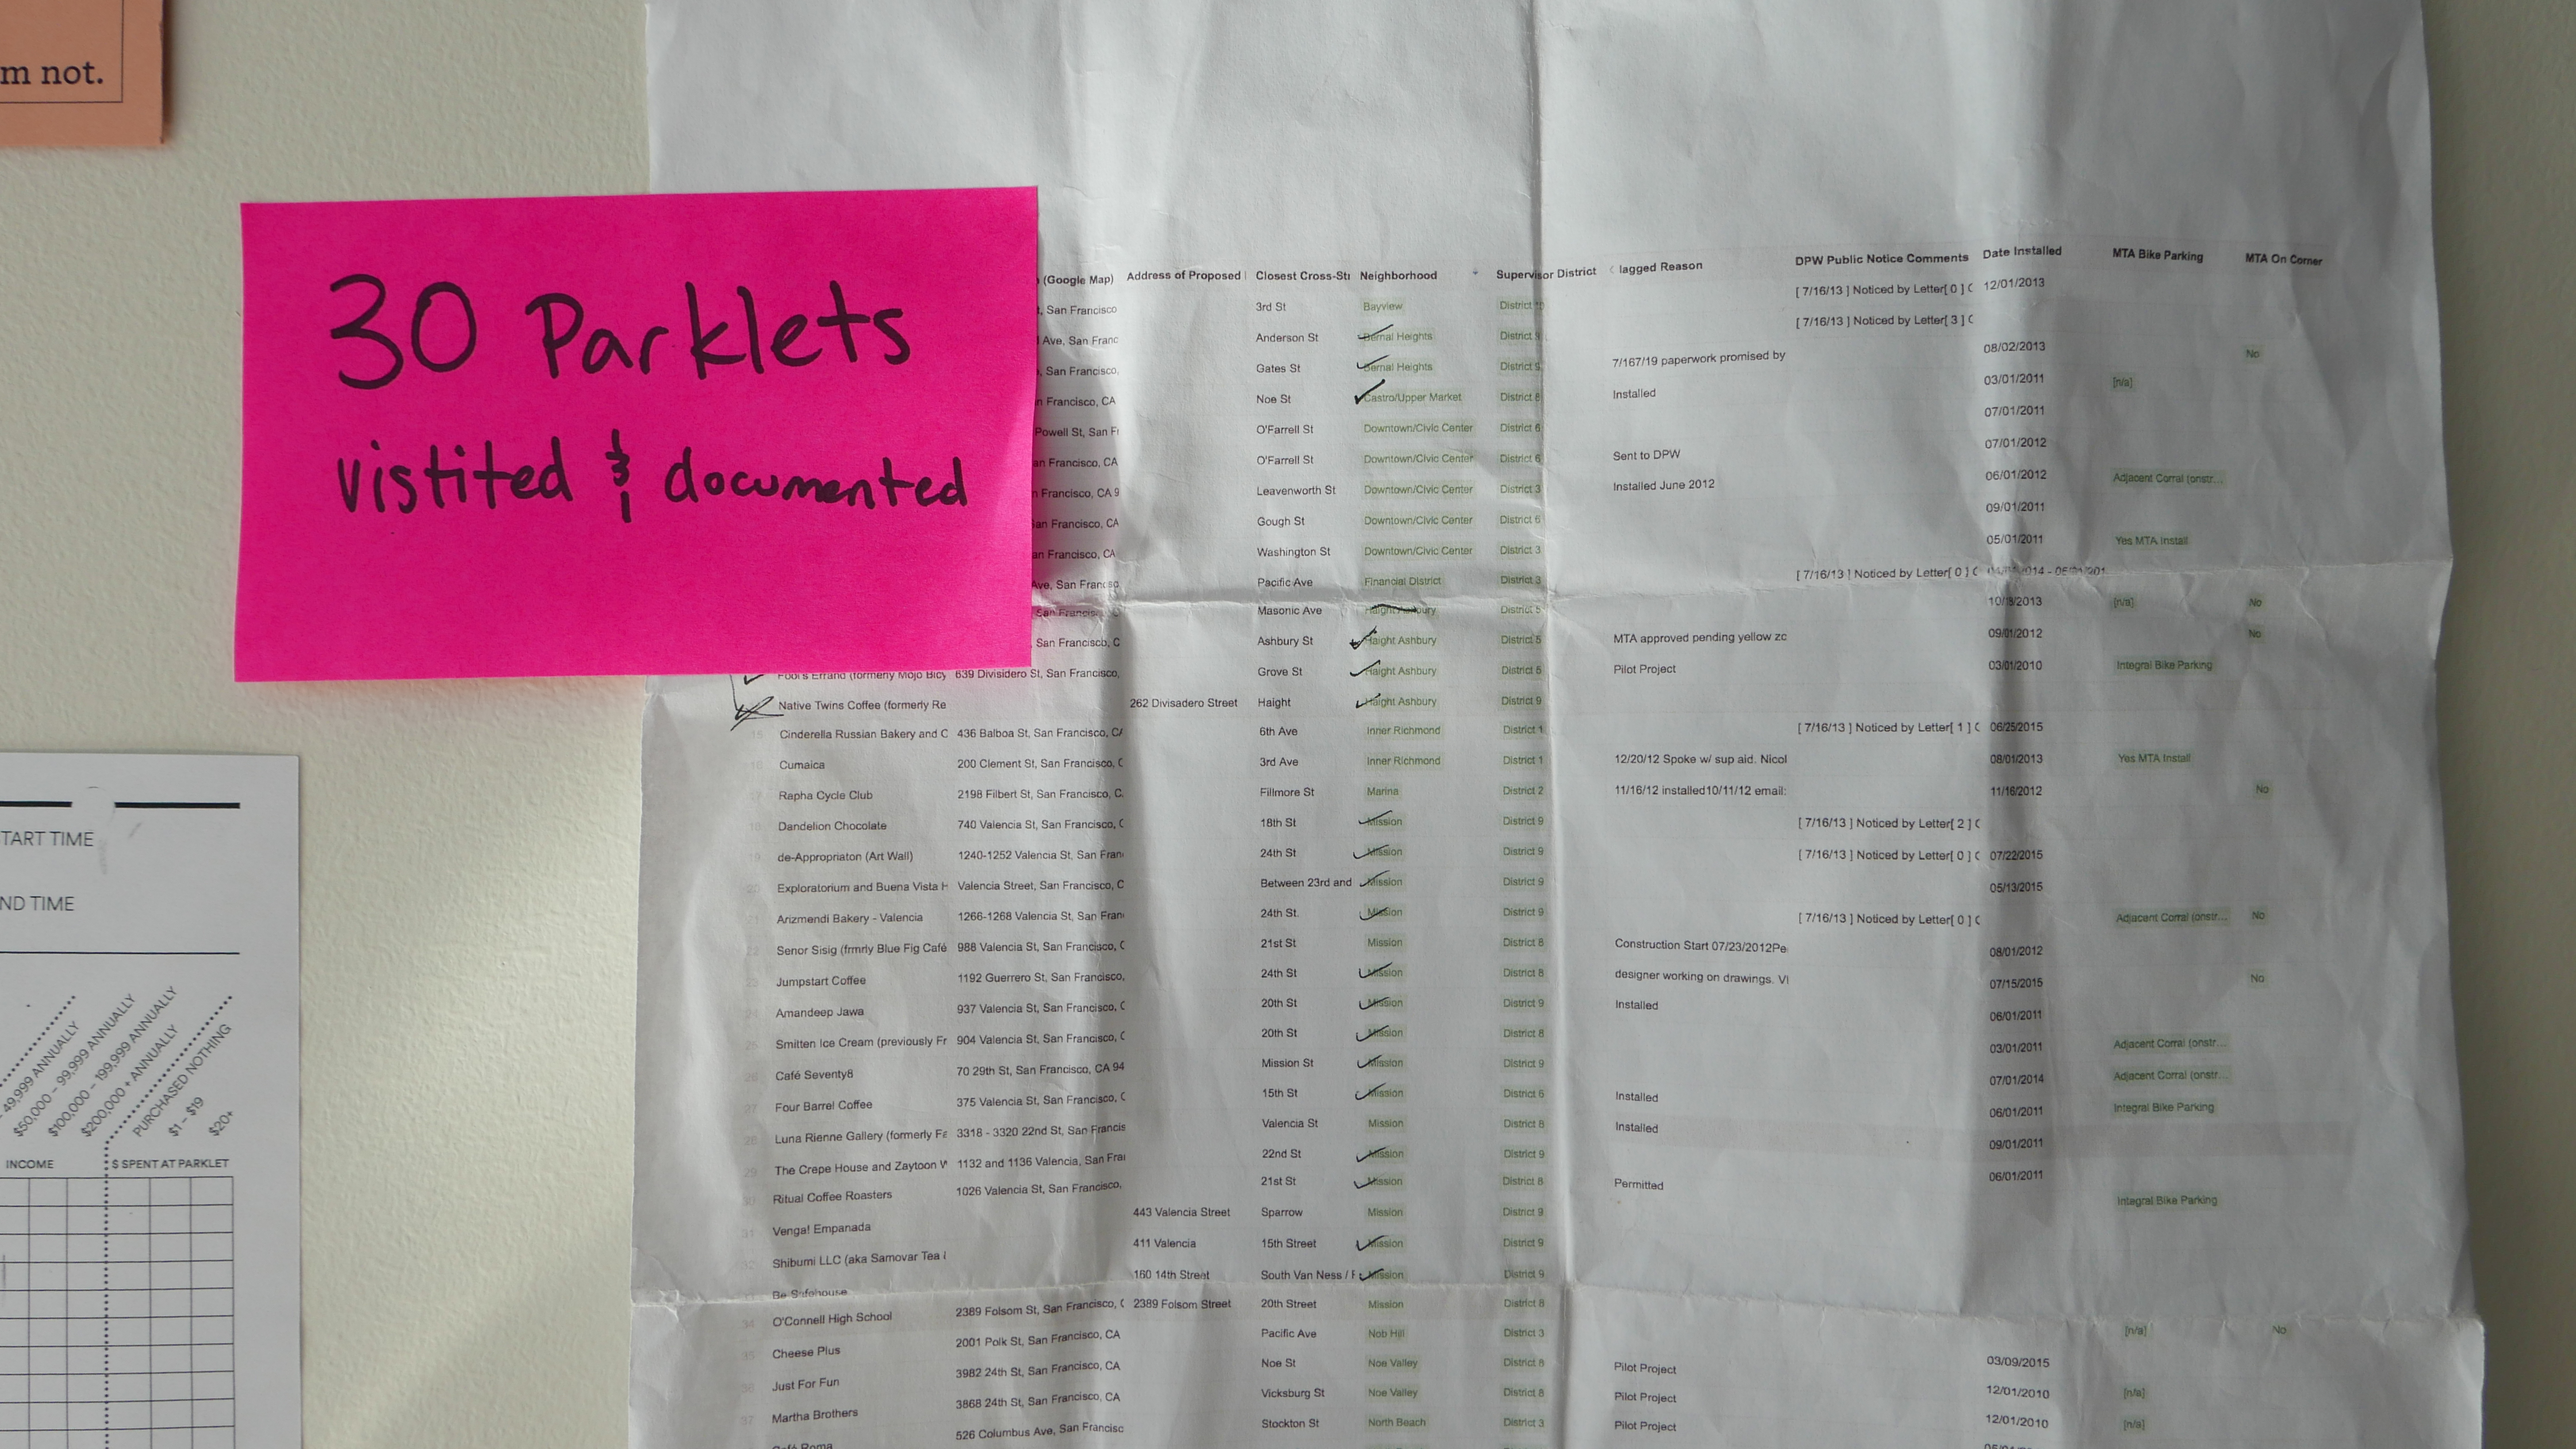 m not.
30 Parklets
vistited & documented
(Google Map) Address of Proposed Closest Cross-Str Neighborhood Supervisor District lagged Reason DPW Public Notice Comments Date Installed MTA Bike Parking MTA On Corner
, San Francisco 3rd St Bayview District 10 [ 7/16/13 ] Noticed by Letter[ 0 ] C 12/01/2013
Ave, San Franc Anderson St Bernal Heights District 9 [ 7/16/13 ] Noticed by Letter[ 3 ] C
, San Francisco, Gates St Bernal Heights District 9 7/167/19 paperwork promised by 08/02/2013 No
n Francisco, CA Noe St Castro/Upper Market District 8 Installed 03/01/2011 [n/a]
Powell St, San Fr O'Farrell St Downtown/Civic Center District 6 07/01/2011
an Francisco, CA O'Farrell St Downtown/Civic Center District 6 Sent to DPW 07/01/2012
n Francisco, CA 9 Leavenworth St Downtown/Civic Center District 3 Installed June 2012 06/01/2012 Adjacent Corral (onstr...
an Francisco, CA Gough St Downtown/Civic Center District 6 09/01/2011
an Francisco, CA Washington St Downtown/Civic Center District 3 05/01/2011 Yes MTA Install
Ave, San Francisc Pacific Ave Financial District District 3 [ 7/16/13 ] Noticed by Letter[ 0 ] C
San Francis Masonic Ave Haight Ashbury District 5 10/18/2013 [n/a] No
San Francisco, C Ashbury St Haight Ashbury District 5 MTA approved pending yellow zc 09/01/2012 No
Fool's Errand (formerly Mojo Bicy 639 Divisidero St, San Francisco, Grove St Haight Ashbury District 5 Pilot Project 03/01/2010 Integral Bike Parking
Native Twins Coffee (formerly Re 262 Divisadero Street Haight Haight Ashbury District 9
15 Cinderella Russian Bakery and C 436 Balboa St, San Francisco, CA 6th Ave Inner Richmond District 1 [ 7/16/13 ] Noticed by Letter[ 1 ] C 06/25/2015
16 Cumaica 200 Clement St, San Francisco, C 3rd Ave Inner Richmond District 1 12/20/12 Spoke w/ sup aid. Nicol 08/01/2013 Yes MTA Install
17 Rapha Cycle Club 2198 Filbert St, San Francisco, C. Fillmore St Marina District 2 11/16/12 installed10/11/12 email: 11/16/2012 No
18 Dandelion Chocolate 740 Valencia St, San Francisco, C 18th St Mission District 9 [ 7/16/13 ] Noticed by Letter[ 2 ] C
19 de-Appropriaton (Art Wall) 1240-1252 Valencia St, San Fran 24th St Mission District 9 [ 7/16/13 ] Noticed by Letter[ 0 ] C 07/22/2015
20 Exploratorium and Buena Vista H Valencia Street, San Francisco, C Between 23rd and Mission District 9 05/13/2015
21 Arizmendi Bakery - Valencia 1266-1268 Valencia St, San Fran 24th St. Mission District 9 [ 7/16/13 ] Noticed by Letter[ 0 ] C Adjacent Corral (onstr... No
22 Senor Sisig (frmrly Blue Fig Café 988 Valencia St, San Francisco, C 21st St Mission District 8 Construction Start 07/23/2012Pe 08/01/2012
23 Jumpstart Coffee 1192 Guerrero St, San Francisco, 24th St Mission District 8 designer working on drawings. VI 07/15/2015 No
24 Amandeep Jawa 937 Valencia St, San Francisco, C 20th St Mission District 9 Installed 06/01/2011
25 Smitten Ice Cream (previously Fr 904 Valencia St, San Francisco, C 20th St Mission District 8 03/01/2011 Adjacent Corral (onstr...
26 Café Seventy8 70 29th St, San Francisco, CA 94 Mission St Mission District 9 07/01/2014 Adjacent Corral (onstr...
27 Four Barrel Coffee 375 Valencia St, San Francisco, C 15th St Mission District 6 Installed 06/01/2011 Integral Bike Parking
28 Luna Rienne Gallery (formerly Fa 3318 - 3320 22nd St, San Francis Valencia St Mission District 8 Installed 09/01/2011
29 The Crepe House and Zaytoon W 1132 and 1136 Valencia, San Frai 22nd St Mission District 9 06/01/2011
30 Ritual Coffee Roasters 1026 Valencia St, San Francisco, 21st St Mission District 8 Permitted Integral Bike Parking
31 Venga! Empanada 443 Valencia Street Sparrow Mission District 9
32 Shibumi LLC (aka Samovar Tea 411 Valencia 15th Street Mission District 9
33 Be Safehouse 160 14th Street South Van Ness / F Mission District 9
34 O'Connell High School 2389 Folsom St, San Francisco, C 2389 Folsom Street 20th Street Mission District 8
35 Cheese Plus 2001 Polk St, San Francisco, CA Pacific Ave Nob Hill District 3 [n/a] No
36 Just For Fun 3982 24th St, San Francisco, CA Noe St Noe Valley District 8 Pilot Project 03/09/2015
37 Martha Brothers 3868 24th St, San Francisco, CA Vicksburg St Noe Valley District 8 Pilot Project 12/01/2010 [n/a]
Café Roma 526 Columbus Ave, San Francisc Stockton St North Beach District 3 Pilot Project 12/01/2010 [n/a]
TART TIME
ND TIME
49,999 ANNUALLY
$50,000 – 99,999 ANNUALLY
$100,000 – 199,999 ANNUALLY
$200,000 + ANNUALLY
PURCHASED NOTHING
$1 – $19
$20+
INCOME $ SPENT AT PARKLET